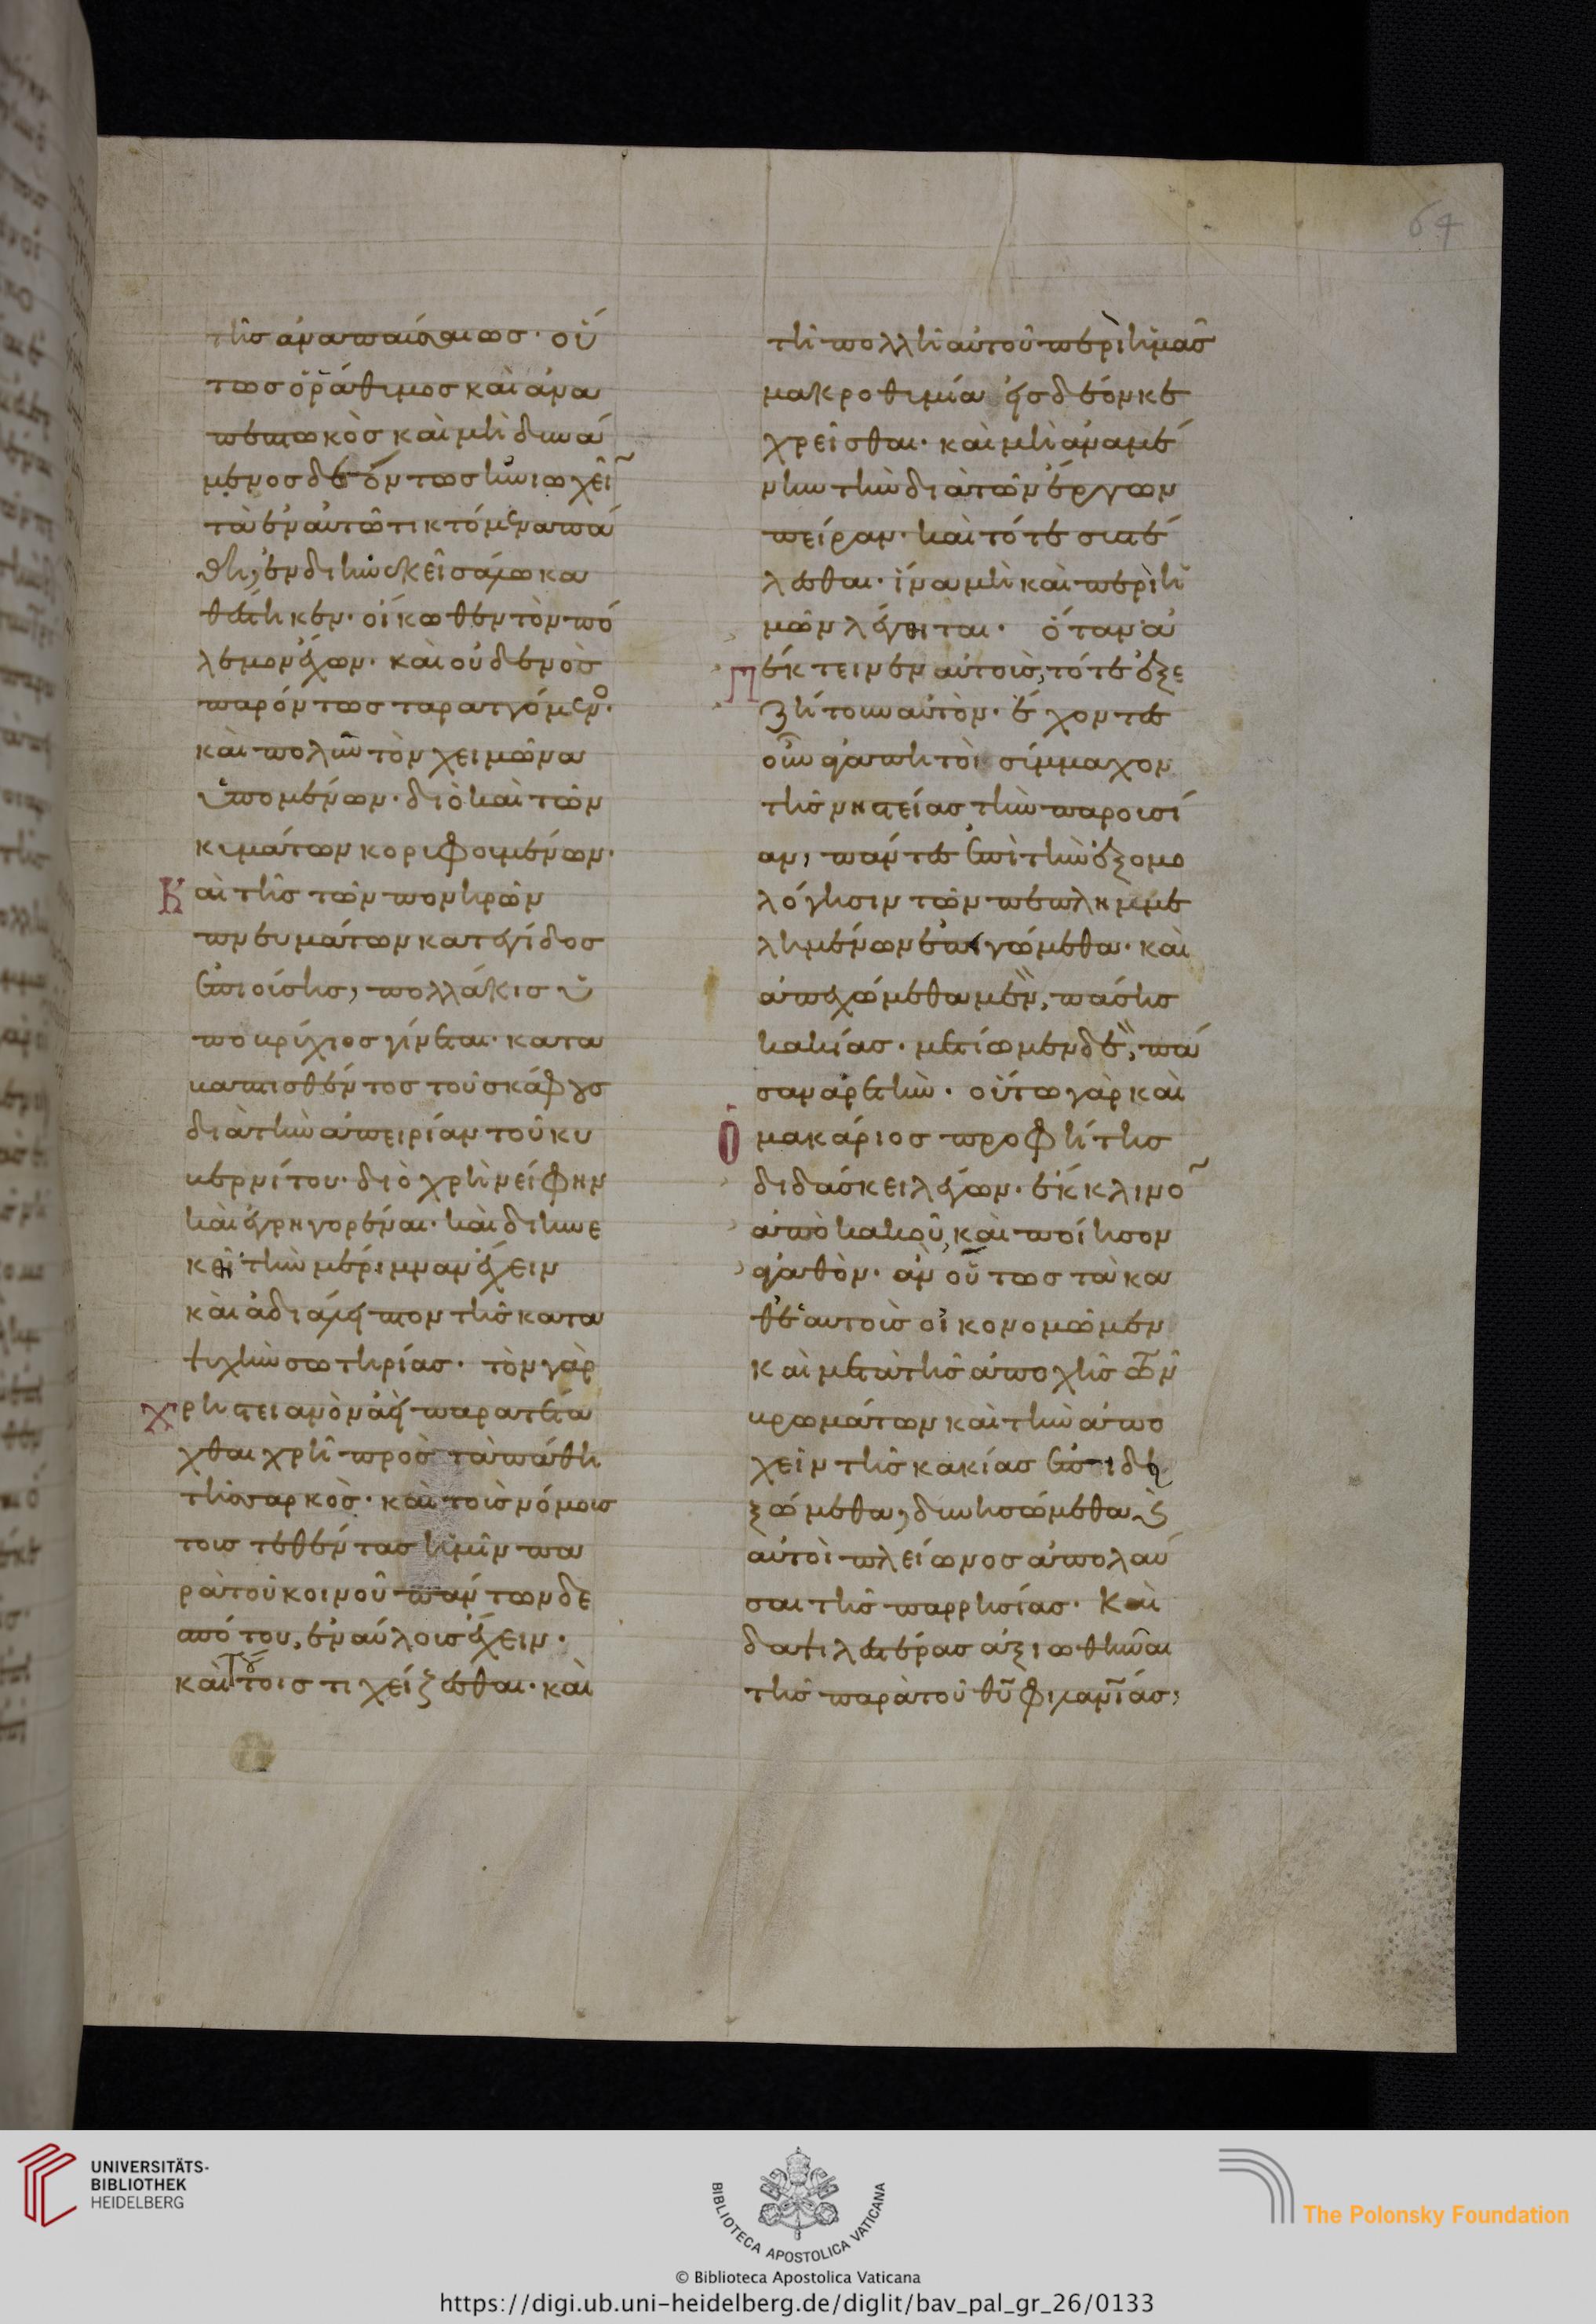 64
τῆς ἀναπαύσεως· οὕ
τως ὁ ῥάθυμος καὶ ἀνα
πεπτωκὸς καὶ μὴ δυνά
μενος δεόντως ἡνιοχεῖν
τὰ ἐν αὐτῶ τικτόμενα πά
θη, ἐν διηνεκεῖ σάλω κα
θέστηκεν· οἴκωθεν τὸν πό
λεμον ἔχων· καὶ οὐδενὸς
παρόντως ταραττόμενο·
καὶ πολὺν τὸν χειμῶνα
ὑπομένων· διὸ καὶ τῶν
κυμάτων κορυφουμένων·
Καὶ τῆς τῶν πονηρῶν
πνευμάτων καταγίδος
ἐπιούσης, πολλάκις ὑ
ποβρύχιος γίνεται· κατα
βαπτισθέντος τοῦ σκάφους
διὰ τὴν ἀπειρίαν τοῦ κυ
βερνίτου· διὸ χρὴ νείφην
καὶ ἐγρηγορέναι· καὶ διηνε
κεῖ τὴν μέριμναν ἔχειν
καὶ ἀδιάλειπτον τῆς κατα
ψυχὴν σωτηρίας· τὸν γὰρ
χρηστειανὸν ἀεὶ παρατετά
χθαι χρὴ πρὸς τὰ πάθη
τῆς σαρκὸς· καὶ τοὺς νόμους
τοὺς τεθέντας ἡμῖν πα
ρὰ τοῦ κοινοῦ πάντων δε
σπότου, ἐν αὔλοις ἔχειν·
καὶ τούτοις τιχείζεσθαι· καὶ
τῆ πολλῆ αὐτοῦ περὶ ἡμᾶς
μακροθυμία εἰς δέον κε
χρεῖσθαι· καὶ μὴ ἀναμέ
νην τὴν διὰ τῶν ἔργων
πείραν· καὶ τότε συστέ
λεσθαι· ἵνα μὴ καὶ περὶ ἡ
μῶν λέγηται· ὅταν ἀ
πέκτεινεν αὐτοὺς, τότε ἐξε
ζήτουν αὐτὸν· ἔχοντες
οὖν ἀγαπητοὶ σύμμαχον
τῆς νηστείας τὴν παρουσί
αν, πάντες ἐπὶ τὴν ἐξομο
λόγησιν τῶν πεπλημμε
λημένων ἐπιγώμεθα· καὶ
ἀπεχώμεθα μὲν, πάσης
κακίας· μετίωμεν δὲ, πά
σαν ἀρετὴν· οὕτω γὰρ καὶ
ὁ μακάριος προφήτης
διδάσκει λέγων· ἔκκλινον
ἀπὸ κακοῦ, καὶ ποίησον
ἀγαθὸν· ἂν οὕτως τὰ κα
θ' ἑαυτοὺς οἰκονομῶμεν
καὶ μετὰ τῆς ἀποχῆς τῶν
βρωμάτων καὶ τὴν ἀπο
χεῖν τῆς κακίας ἐπιδει
ξώμεθα, δυνησώμεθα καὶ
αὐτοὶ πλείωνος ἀπολαύ
σαι τῆς παρρησίας· Καὶ
δαψιλεστέρας ἀξιωθῆναι
τῆς παρὰ τοῦ θῦ φιλανίας,
UNIVERSITÄTS-
BIBLIOTHEK
HEIDELBERG
BIBLIOTECA APOSTOLICA VATICANA
The Polonsky Foundation
© Biblioteca Apostolica Vaticana
https://digi.ub.uni-heidelberg.de/diglit/bav_pal_gr_26/0133